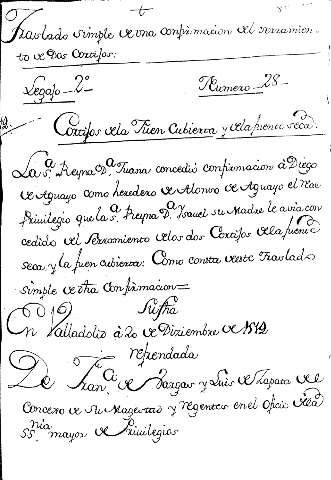 Traslado simple de una confirmacion del serramien-
to de dos Cortijos:
Legajo - 2º Numero - 28 -
Cortijos de la Fuen Cubierta y de la fuente seca.
La S.ª Reyna D.ª Juana concedió confirmacion à Diego
de Aguayo como heredero de Alonso de Aguayo el
Privilegio que la S.ª Reyna D.ª Ysauel su Madre le avia con
cedido del Serramiento de los dos Cortijos de la fuente
seca y la fuen cubierta: Como consta deste Traslado
simple de dha Confirmacion=
Su fha
En Valladolid à 20 de Diziembre de
refrendada
De Fran.ª de Vargas y Luis de Zapata del
Concexo de Su Magestad y regentes en el Oficio de la
SS.nia mayor de Privilegios